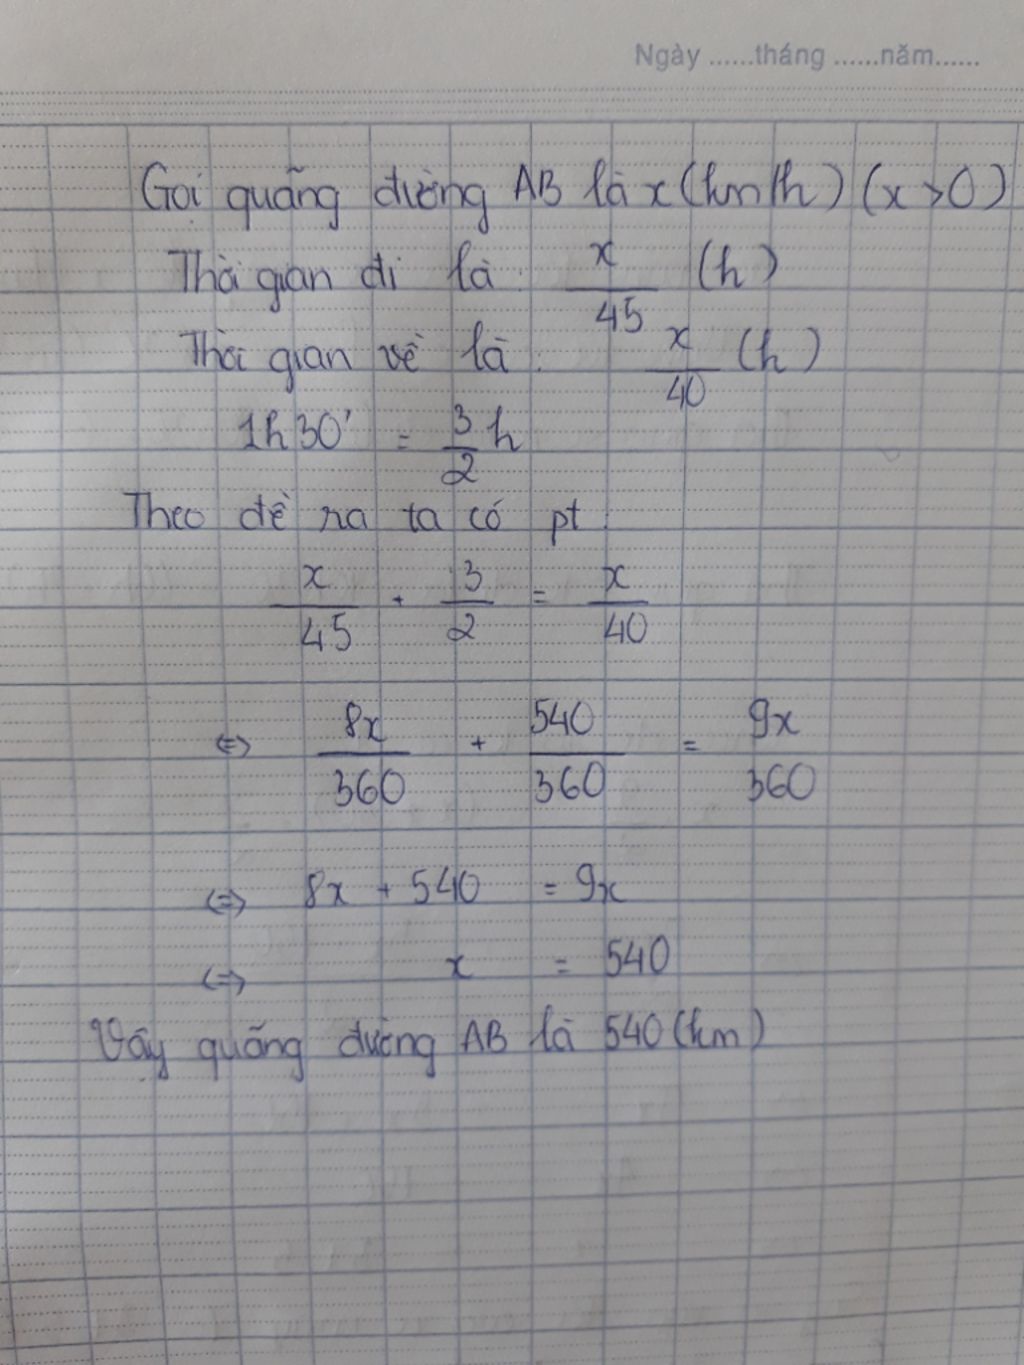 Ngày ......tháng ......năm......
Gọi quãng đường AB là x (km/h) (x > 0)
Thời gian đi là : x/45 (h)
Thời gian về là : x/40 (h)
1h 30' = 3/2 h
Theo đề ra ta có pt :
x/45 + 3/2 = x/40
⇔ 8x/360 + 540/360 = 9x/360
⇔ 8x + 540 = 9x
⇔ x = 540
Vậy quãng đường AB là 540 (km)